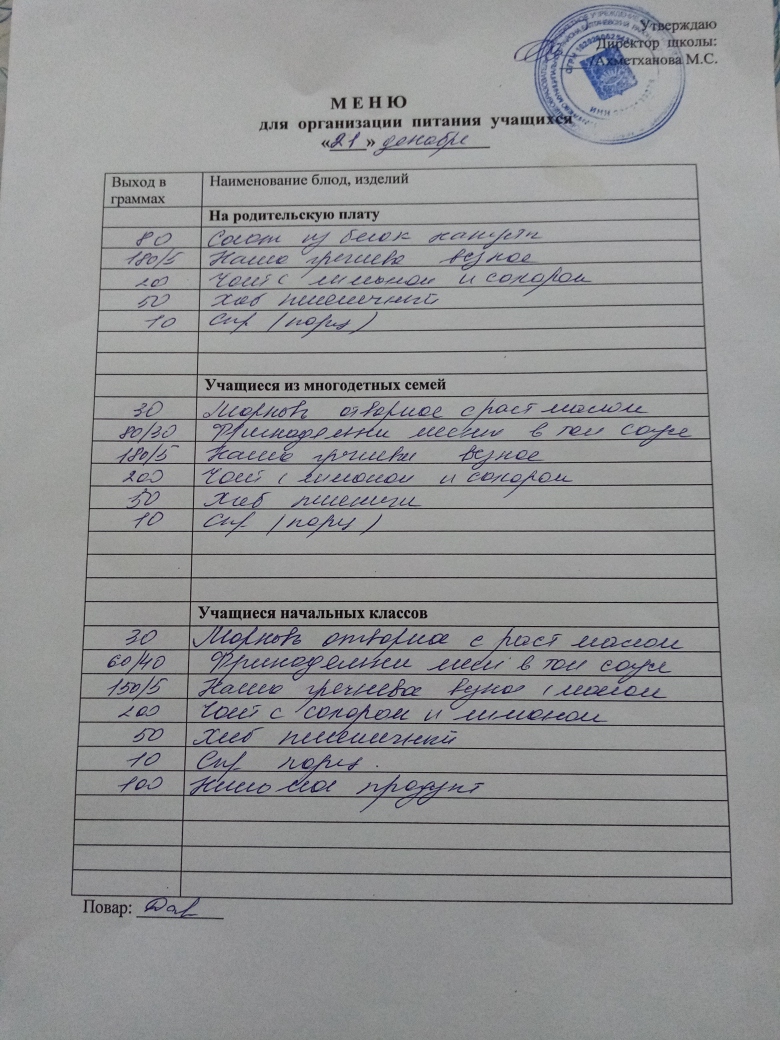 Утверждаю
Директор школы:
/Ахметханова М.С.
М Е Н Ю
для организации питания учащихся
«21» декабре
Выход в граммах Наименование блюд, изделий
На родительскую плату
80 Салат из белок капусти
180/5 Каша гречнева вязкое
200 Чай с лимоном и сахаром
50 Хлеб пшеничный
10 Сыр (порц)
Учащиеся из многодетных семей
30 Морковь отворное с раст маслом
80/30 Фрикадельки мясни в том соусе
180/5 Каша гречневи вязкое
200 Чай с лимоном и сахаром
50 Хлеб пшеничн
10 Сыр (порц)
Учащиеся начальных классов
30 Морковь отворное с раст маслом
60/40 Фрикадельки мясн в том соусе
150/5 Каша гречневое вязкое с маслом
200 Чай с сахаром и лимоном
50 Хлеб пшеничный
10 Сыр порц.
100 Кисло мол продукт
Повар: